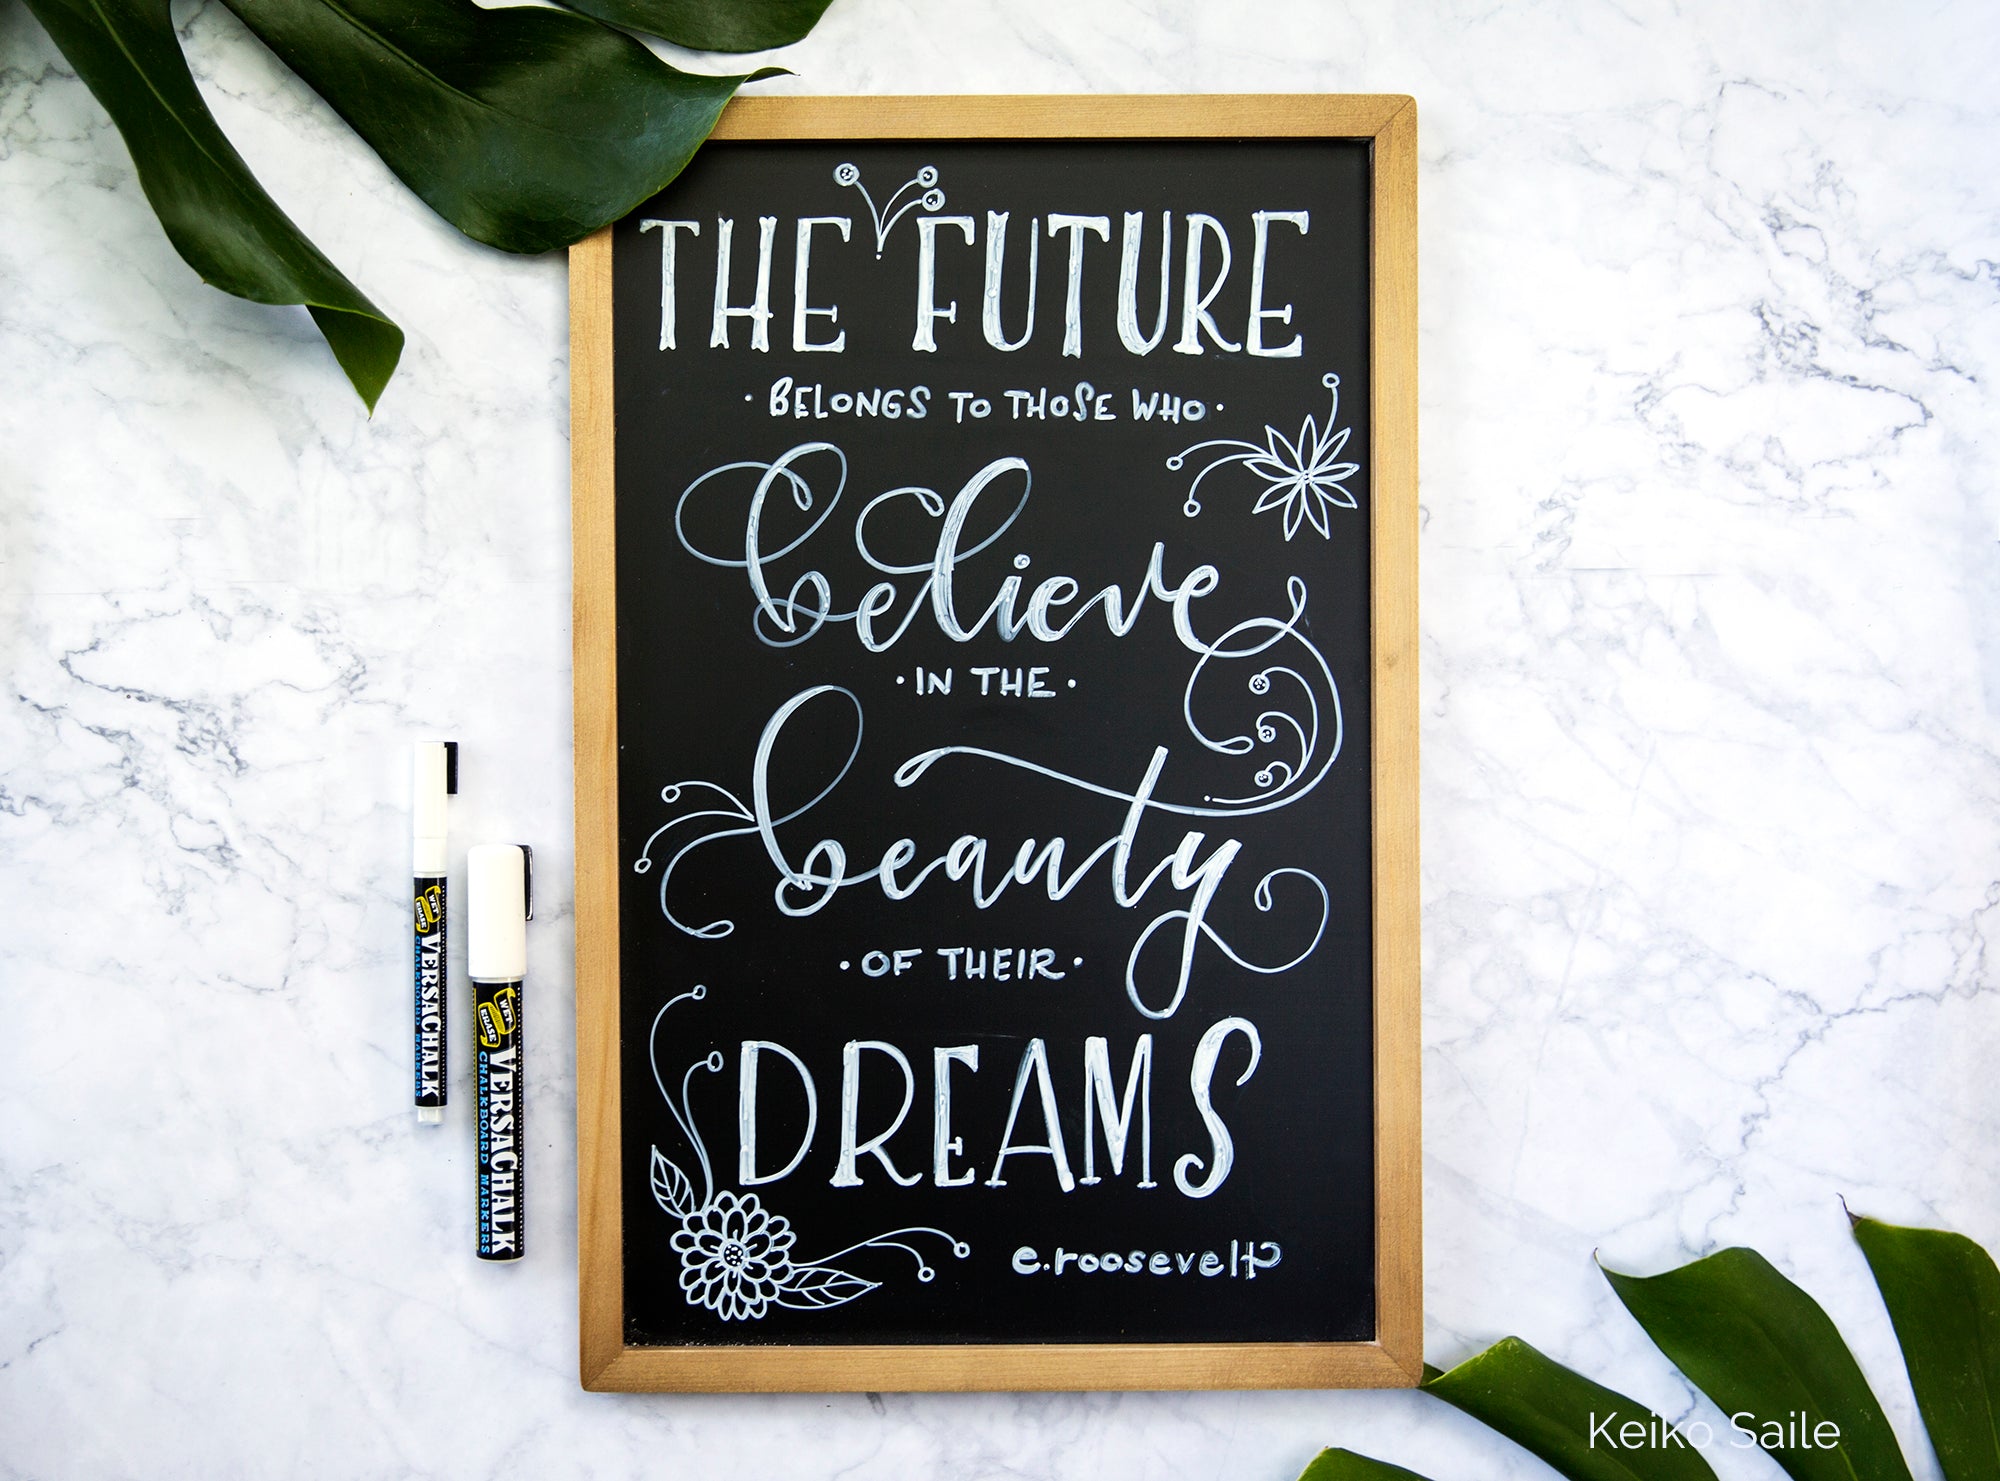 THE FUTURE
· BELONGS TO THOSE WHO ·
believe
· IN THE ·
beauty
· OF THEIR ·
DREAMS
e.roosevelt
WET
ERASE
VERSACHALK
CHALKBOARD MARKERS
WET
ERASE
VERSACHALK
CHALKBOARD MARKERS
Keiko Saile